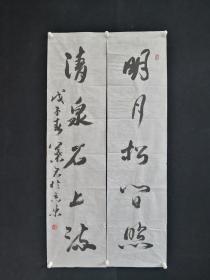 明月松间照
清泉石上流
戊子春